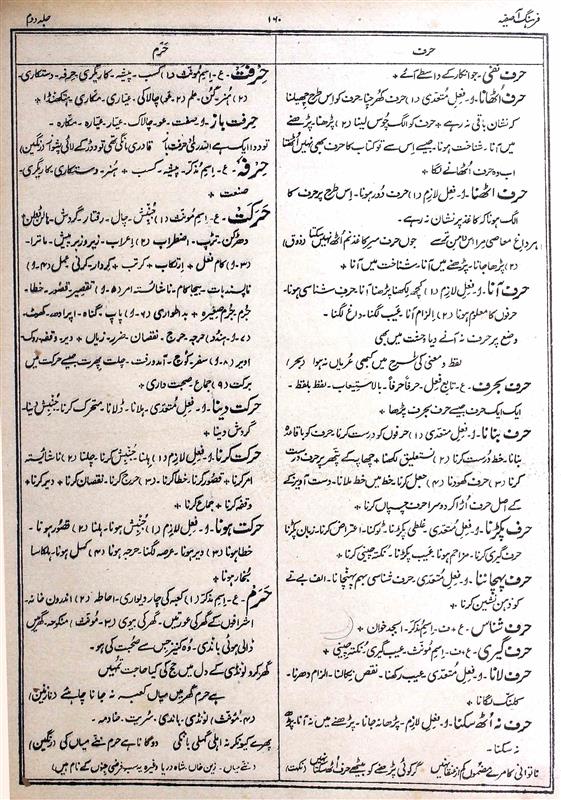 فرہنگ آصفیہ
۱۶۰
جلد دوم
حرف
حرم
حرف نفی - جو انکار کے واسطے آئے +
حرف اٹھانا - و - فعل متعدی (۱) حرف کھرچنا - حرف کو اس طرح چھیلنا
کہ نشان باقی نہ رہے + حرف کو الگ چُوس لینا (۲) پڑھنا - پڑھنے
میں آنا - شناخت ہونا - جیسے اِس سے تو کتاب کا حرف بھی نہیں اُٹھتا
اب وہ حرف اُٹھانے لگا +
حرف اٹھنا - و - فعل لازم (۱) حرف دُور ہونا - اِس طرح پر حرف کا
الگ ہونا کہ کاغذ پر نشان نہ رہے -
جوں حرف سرِ کاغذِ نم اُٹھ نہیں سکتا (ذوق)
(۲) پڑھا جانا - پڑھنے میں آنا - شناخت میں آنا +
حرف آنا - و - فعل لازم (۱) کچھ لکھنا پڑھنا آنا - حرف شناسی ہونا -
حرفوں کا معلوم ہونا (۲) اِلزام آنا - عیب لگنا - داغ لگنا -
وضع پر حرف نہ آنے دیا وحشت میں بھی
لفظ و معنی کی طرح میں کبھی عُریاں نہ ہوا (بحر)
حرف بحرف - ع - تابع فعل - حرفاً حرفاً - بالاستیعاب - لفظ بلفظ -
ایک ایک حرف جیسے حرف بحرف پڑھا +
حرف بنانا - و - فعل متعدی (۱) حرفوں کو درست کرنا - حرف کو باقاعدہ
بنانا - خط درست کرنا (۲) نستعلیق لکھنا + چھاپے کے پتھر پر حرف درست
کرنا (۳) حرف کھودنا (۴) جعل کرنا - خط میں خط ملانا - دست آویز کے
کے اصل حرف اُڑا کر دوسرا حرف چسپاں کرنا +
حرف پکڑنا - و - فعل متعدی - غلطی پکڑنا - ٹوکنا - اعتراض کرنا - زبان پکڑنا
حرف گیری کرنا - مزاحم ہونا - عیب پکڑنا - نکتہ چینی کرنا +
حرف پہچاننا - و - فعل متعدی - حرف شناسی بہم پہنچانا - الف بے تے
کو ذہن نشین کرنا +
حرف شناس - ع + ف - اسم مذکر - ابجد خوان +
حرف گیری - ع + ف - اسم مؤنث - عیب گیری - نکتہ چینی +
حرف لانا - و - فعل متعدی - عیب رکھنا - نقص نکالنا - الزام دھرنا -
کلنک لگانا +
حرف نہ اٹھ سکنا - و - فعل لازم - پڑھا نہ جانا - پڑھنے میں نہ آنا - پڑھ
نہ سکنا -
ناتوانی کا مرے مضموں کم از عنقا نہیں گر کوئی پڑھنے کو بیٹھے حرف اُٹھ سکتا نہیں (نکہت)
حِرفت - ع - اسم مؤنث (۱) کسب - پیشہ - کاریگری - حرفہ - دستکاری -
(۲) ہُنر - گُن - علم (۳ - عو) چالاکی - عیّاری - مکّاری - ہتکھنڈا +
حرفت باز - و - صفت - عو - چالاک - عیّار - عیّارہ - مکّارہ -
حِرفہ - ع - اسم مذکر - پیشہ - کسب + ہُنر - دستکاری - کاریگری -
صنعت +
حرکت - ع - اسم مؤنث (۱) جُنبش - چال - رفتار - گردش - ہالن ڈولن
دھڑکن - تڑپ - اضطراب (۲) اِعراب - زیر و زبر پیش - ماترا -
(۳ - و) کام - فعل + اِرتکاب + کرتب + کردار - کرنی - عمل (۴ - و)
ناپسند بات - بیجا کام - ناشائستہ امر (۵ - و) تقصیر - قصور - خطا -
جُرم - جُرمِ صغیرہ + بداطواری (۶ - و) پاپ - گناہ - اپرادھ - کھوٹ -
(۷ - و) ہندو - حرجہ - حرج - نقصان - ضرر - زیاں + دیر - وقفہ - روک
اویر (۸ - و) سفر - کوچ - آمدورفت - چلت پھرت جیسے حرکت میں
برکت (۹) جماع - صحبت داری +
حرکت دینا - و - فعل متعدی - ہلانا - ڈلانا - متحرک کرنا - جُنبش دینا -
گردش دینا +
حرکت کرنا - و - فعل لازم (۱) ہلنا - جُنبش کرنا - چلنا (۲) ناشائستہ
امر کرنا + قصور کرنا - خطا کرنا - (۳) حرج کرنا - نقصان کرنا + دیر کرنا +
وقفہ کرنا + جماع کرنا +
حرکت ہونا - و - فعل لازم (۱) جُنبش ہونا - ہلنا (۲) قصور ہونا -
خطا ہونا (۳) دیر ہونا - عرصہ لگنا - حرجہ ہونا (۴) کسل ہونا - ہلکا سا
بُخار ہونا +
حَرَم - ع - اسم مذکر (۱) کعبہ کی چار دیواری - احاطہ (۲) اندرون خانہ -
اشرافوں کے گھر کی عورتیں - گھر کی بیوی (۳ - مؤنث) منکوحہ - گھر میں
ڈالی ہوئی باندی - وُہ کنیز جس سے صحبت کی ہو -
گھر کر و لونڈی کے دل میں حج کی کیا حاجت تمہیں
بے حرم گھر میں میاں کعبہ نہ جانا چاہئے (نازنین)
(۴ - مؤنث) لونڈی - باندی - سُریت - خادمہ -
پھرے کیونکر نہ اِہلی گہلی بانکی دوگانا ہے حرم ننھے میاں کی (رنگین)
(ننھے میاں - زین خاں - شاہ دریا وغیرہ یہ سب فرضی جنوں کے نام ہیں)